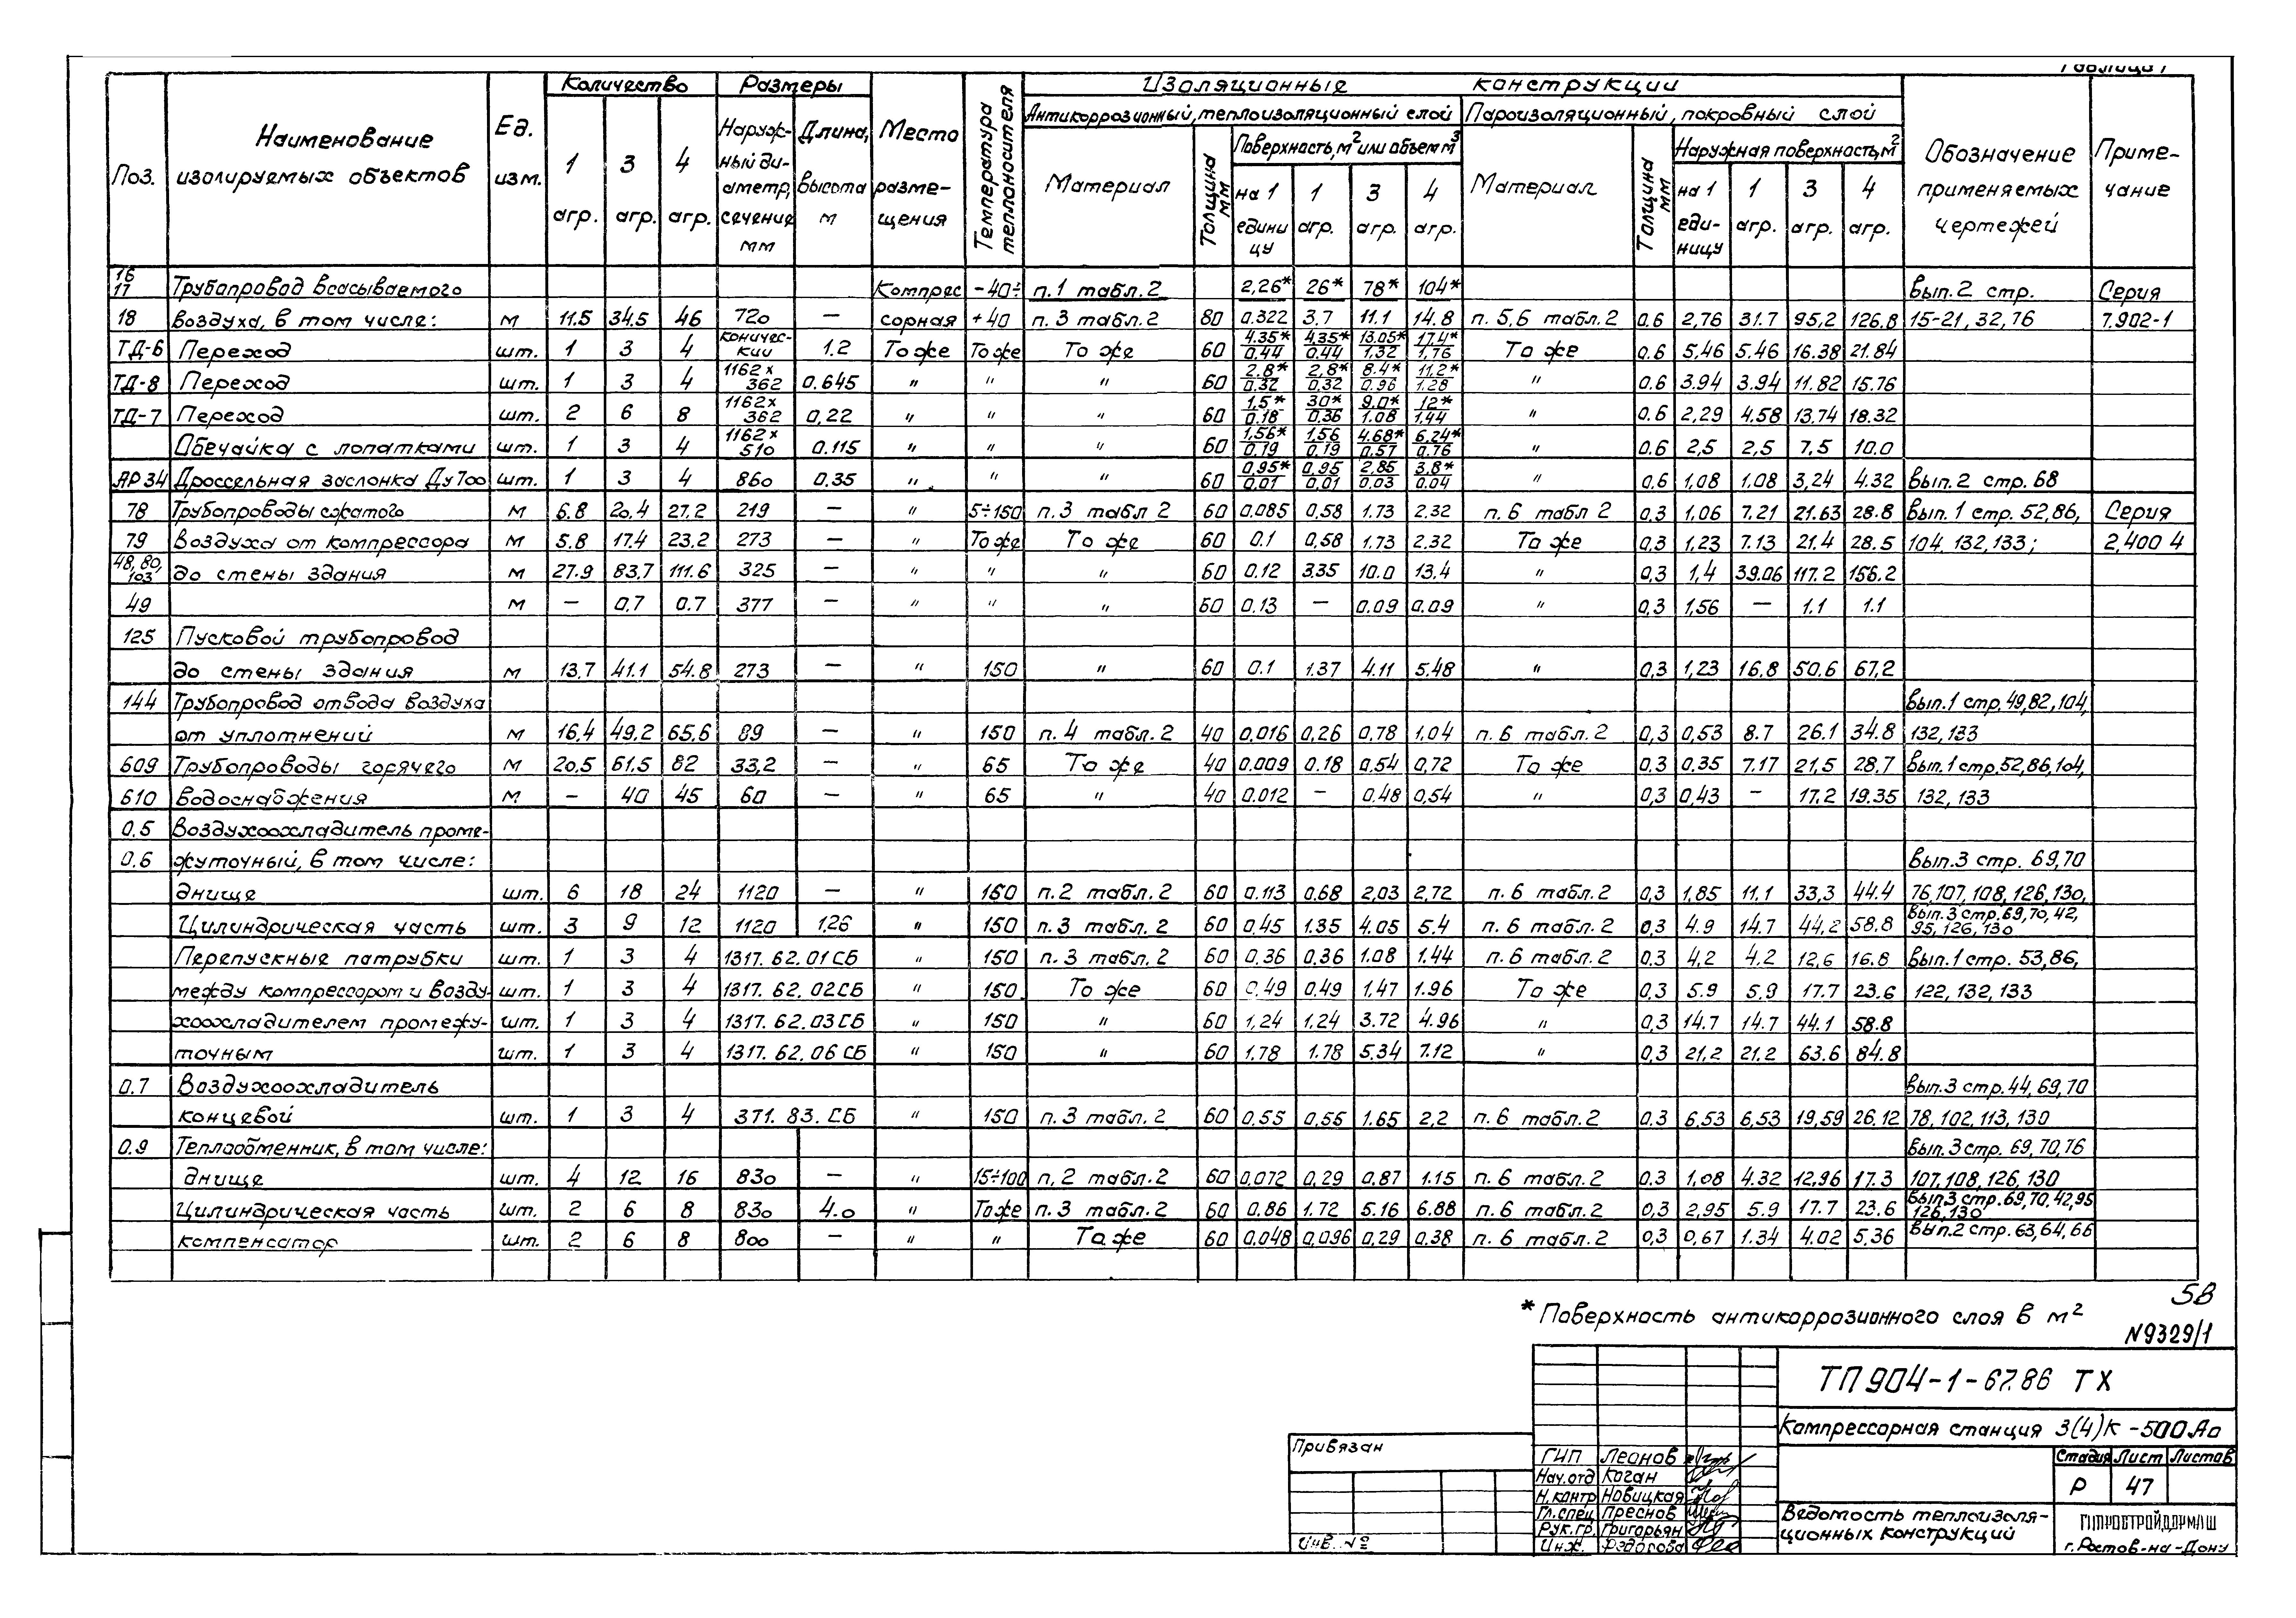 Таблица 1
Поз. | Наименование изолируемых объектов | Ед. изм. | Количество | Размеры | Место размещения | Температура теплоносителя | Изоляционные конструкции | Обозначение применяемых чертежей | Примечание
1 агр. | 3 агр. | 4 агр. | Наружный диаметр, сечение мм | Длина, высота м | Антикоррозионный, теплоизоляционный слой | Пароизоляционный, покровный слой
Материал | Толщина мм | Поверхность, м2 или объем м3 | Материал | Толщина мм | Наружная поверхность, м2
на 1 единицу | 1 агр. | 3 агр. | 4 агр. | на 1 единицу | 1 агр. | 3 агр. | 4 агр.
16 17 | Трубопровод всасываемого | Компрес | -40÷ | п.1 табл.2 | 2,26* | 26* | 78* | 104* | Вып.2 стр. | Серия
18 | воздуха, в том числе: | м | 11.5 | 34.5 | 46 | 720 | — | сорная | +40 | п.3 табл.2 | 80 | 0.322 | 3.7 | 11.1 | 14.8 | п.5,6 табл.2 | 0.6 | 2,76 | 31.7 | 95,2 | 126.8 | 15-21, 32, 76 | 7.902-1
ТД-6 | Переход | шт. | 1 | 3 | 4 | коничес-кии | 1.2 | То же | То же | То же | 60 | 4.35*/0.44 | 4,35*/0.44 | 13.05*/1.32 | 17.4*/1,76 | То же | 0.6 | 5.46 | 5.46 | 16.38 | 21.84
ТД-8 | Переход | шт. | 1 | 3 | 4 | 1162х362 | 0.645 | " | " | " | 60 | 2.8*/0.32 | 2,8*/0,32 | 8.4*/0.96 | 11.2*/1.28 | " | 0.6 | 3.94 | 3.94 | 11.82 | 15.76
ТД-7 | Переход | шт. | 2 | 6 | 8 | 1162х362 | 0,22 | " | " | " | 60 | 1,5*/0.18 | 30*/0,36 | 9.0*/1.08 | 12*/1,44 | " | 0.6 | 2,29 | 4.58 | 13.74 | 18.32
Обечайка с лопатками | шт. | 1 | 3 | 4 | 1162х510 | 0.115 | " | " | " | 60 | 1,56*/0.19 | 1,56/0.19 | 4.68*/0.57 | 6.24*/0.76 | " | 0.6 | 2,5 | 2,5 | 7.5 | 10.0
АР34 | Дроссельная заслонка Ду700 | шт. | 1 | 3 | 4 | 860 | 0.35 | " | " | " | 60 | 0,95*/0.01 | 0,95/0,01 | 2,85/0.03 | 3.8*/0.04 | " | 0,6 | 1,08 | 1.08 | 3,24 | 4.32 | Вып.2 стр.68
78 | Трубопроводы сжатого | м | 6.8 | 20,4 | 27,2 | 219 | — | " | 5÷150 | п.3 табл 2 | 60 | 0.085 | 0,58 | 1.73 | 2.32 | п.6 табл 2 | 0,3 | 1,06 | 7.21 | 21.63 | 28.8 | Вып.1 стр.52,86, | Серия
79 | воздуха от компрессора | м | 5.8 | 17.4 | 23.2 | 273 | — | " | То же | То же | 60 | 0.1 | 0,58 | 1.73 | 2.32 | То же | 0.3 | 1,23 | 7.13 | 21.4 | 28.5 | 104, 132,133; | 2,400 4
48,80,103 | до стены здания | м | 27.9 | 83,7 | 111.6 | 325 | — | " | " | " | 60 | 0.12 | 3.35 | 10.0 | 13.4 | " | 0,3 | 1,4 | 39.06 | 117.2 | 156.2
49 | м | — | 0,7 | 0.7 | 377 | — | " | " | " | 60 | 0.13 | — | 0.09 | 0.09 | " | 0,3 | 1,56 | — | 1.1 | 1.1
125 | Пусковой трубопровод
до стены здания | м | 13,7 | 41.1 | 54.8 | 273 | — | " | 150 | " | 60 | 0.1 | 1.37 | 4.11 | 5.48 | " | 0,3 | 1,23 | 16.8 | 50.6 | 67,2
144 | Трубопровод отвода воздуха | Вып.1 стр.49,82,104,
от уплотнений | м | 16,4 | 49,2 | 65,6 | 89 | — | " | 150 | п.4 табл.2 | 40 | 0,016 | 0,26 | 0,78 | 1,04 | п.6 табл.2 | 0,3 | 0,53 | 8.7 | 26.1 | 34.8 | 132,133
609 | Трубопроводы горячего | м | 20,5 | 61.5 | 82 | 33,2 | — | " | 65 | То же | 40 | 0.009 | 0.18 | 0,54 | 0,72 | То же | 0.3 | 0.35 | 7.17 | 21,5 | 28.7 | Вып.1 стр.52,86,104,
610 | водоснабжения | м | — | 40 | 45 | 60 | — | " | 65 | " | 40 | 0.012 | — | 0.48 | 0,54 | " | 0,3 | 0,43 | — | 17.2 | 19.35 | 132, 133
0.5 | Воздухоохладитель проме-
0.6 | жуточный, в том числе: | Вып.3 стр. 69,70
днище | шт. | 6 | 18 | 24 | 1120 | — | " | 150 | п.2 табл.2 | 60 | 0.113 | 0.68 | 2,03 | 2,72 | п.6 табл.2 | 0,3 | 1,85 | 11.1 | 33,3 | 44.4 | 76,107,108,126,130,
Цилиндрическая часть | шт. | 3 | 9 | 12 | 1120 | 1.26 | " | 150 | п.3 табл.2 | 60 | 0,45 | 1.35 | 4.05 | 5.4 | п.6 табл.2 | 0,3 | 4.9 | 14.7 | 44,2 | 58.8 | Вып.3 стр.69,70,42, 95,126,130
Перепускные патрубки | шт. | 1 | 3 | 4 | 1317. 62.01СБ | " | 150 | п.3 табл.2 | 60 | 0.36 | 0,36 | 1.08 | 1.44 | п.6 табл.2 | 0.3 | 4,2 | 4.2 | 12,6 | 16.8 | Вып.1 стр. 53,86,
между компрессором и возду- | шт. | 1 | 3 | 4 | 1317. 62.02СБ | " | 150 | То же | 60 | 0.49 | 0,49 | 1,47 | 1.96 | То же | 0.3 | 5.9 | 5.9 | 17.7 | 23.6 | 122, 132, 133
хоохладителем промежу- | шт. | 1 | 3 | 4 | 1317. 62.03СБ | " | 150 | " | 60 | 1,24 | 1,24 | 3.72 | 4.96 | " | 0,3 | 14.7 | 14.7 | 44.1 | 58.8
точным | шт. | 1 | 3 | 4 | 1317. 62.06СБ | " | 150 | " | 60 | 1.78 | 1.78 | 5.34 | 7.12 | " | 0,3 | 21,2 | 21.2 | 63.6 | 84.8
0.7 | Воздухоохладитель | Вып.3 стр.44,69,70
концевой | шт. | 1 | 3 | 4 | 371. 83. СБ | " | 150 | п.3 табл.2 | 60 | 0.55 | 0,55 | 1.65 | 2,2 | п.6 табл.2 | 0.3 | 6,53 | 6,53 | 19,59 | 26.12 | 78,102,113,130
0.9 | Теплообменник, в том числе: | Вып.3 стр. 69,70,76
днище | шт. | 4 | 12 | 16 | 830 | — | " | 15÷100 | п.2 табл.2 | 60 | 0,072 | 0,29 | 0,87 | 1.15 | п.6 табл.2 | 0.3 | 1,08 | 4.32 | 12,96 | 17.3 | 107,108,126,130
Цилиндрическая часть | шт. | 2 | 6 | 8 | 830 | 4.0 | " | То же | п.3 табл.2 | 60 | 0.86 | 1.72 | 5.16 | 6.88 | п.6 табл.2 | 0,3 | 2,95 | 5.9 | 17.7 | 23.6 | Вып.3 стр.69,70,42,95 126,130
компенсатор | шт. | 2 | 6 | 8 | 800 | — | " | " | То же | 60 | 0,048 | 0,096 | 0,29 | 0.38 | п.6 табл.2 | 0,3 | 0,67 | 1.34 | 4.02 | 5,36 | Вып.2 стр.63,64,66
58
* Поверхность антикоррозионного слоя в м2
N9329/1
ТП 904-1-67.86 ТХ
Компрессорная станция 3(4)К-500Ао
Привязан
Инв. №
ГИП Леонов
Нач.отд Коган
Н.контр Новицкая
Гл.спец Преснов
Рук.гр. Григорьян
Инж. Федорова
Стадия Лист Листов
Р 47
Ведомость теплоизоля-
ционных конструкций
г. Ростов-на-Дону